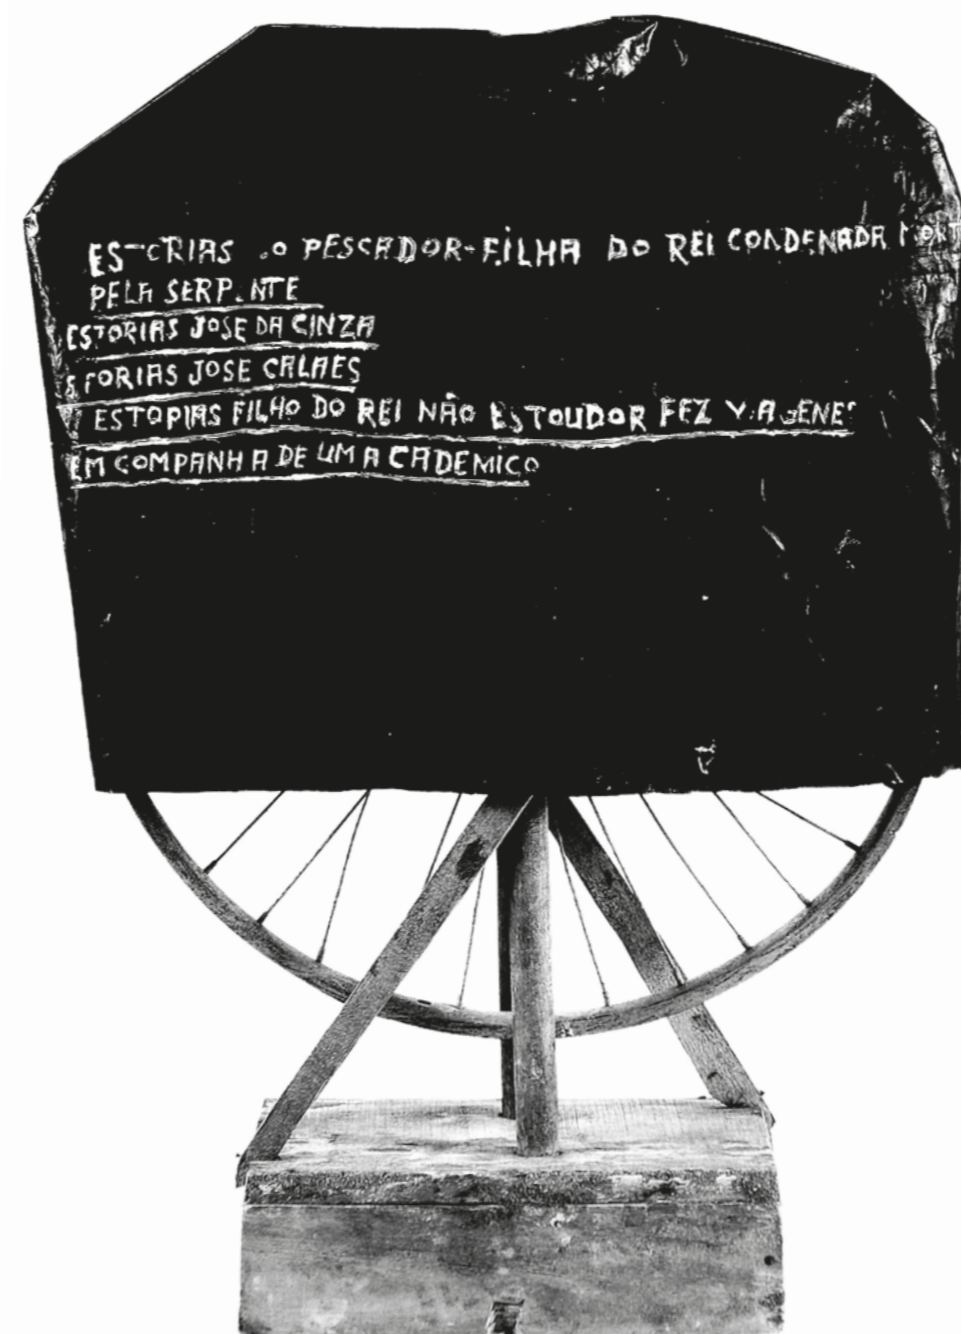 ESTORIAS DO PESCADOR-FILHA DO REI CONDENADA MORT
PELA SERPENTE
ESTORIAS JOSE DA CINZA
STORIAS JOSE CALAES
ESTORIAS FILHO DO REI NÃO ESTOUDOR FEZ
EM COMPANHA DE UM ACADEMICO